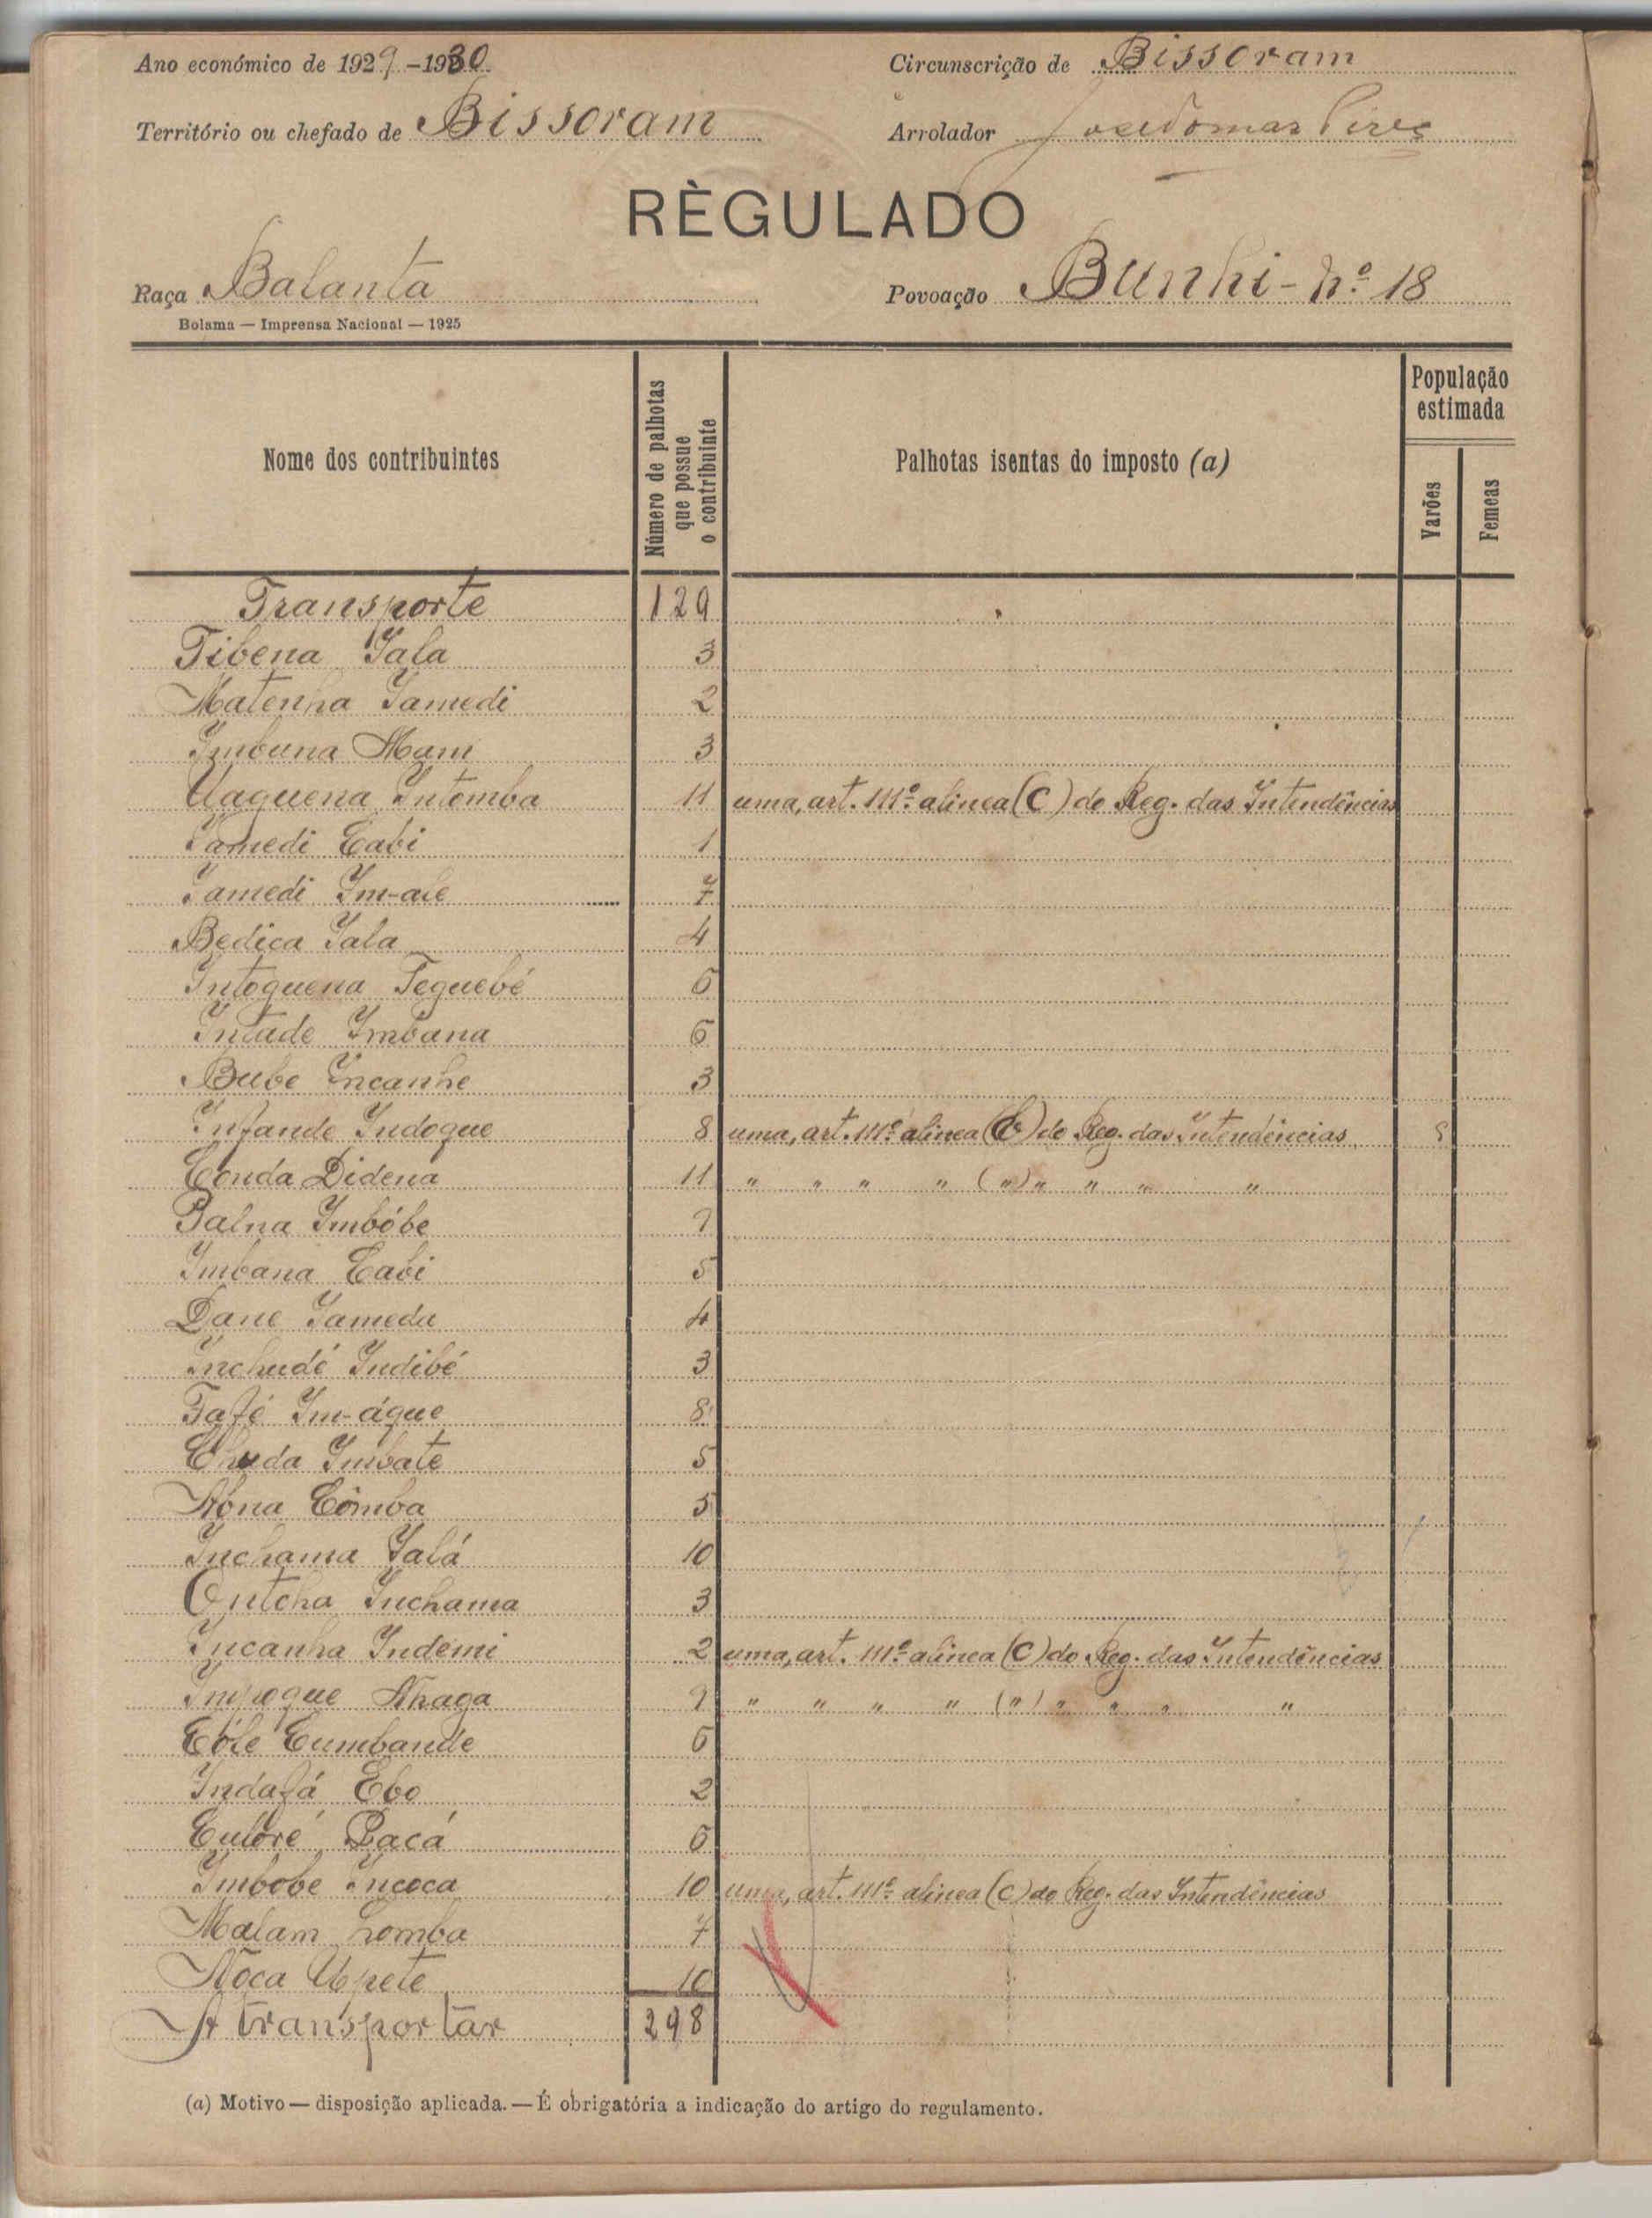 Ano económico de 1929-1930 Circunscrição de Bissoram
Território ou chefado de Bissoram Arrolador Pires
RÈGULADO
Raça Balanta Povoação Bunhi - Nº 18
Bolama — Imprensa Nacional — 1925
Nome dos contribuintes
Número de palhotas que possue o contribuinte
Palhotas isentas do imposto (a)
População estimada
Varões
Femeas
Transporte 129
Tibena Yala 3
Matenha Yamedi 2
Imbuna Mam 3
Uaguena Intomba 11 uma, art. 111º alinea (C) do Reg. das Intendências
Yamedi Cabi 1
Yamedi Im-ale 7
Bedica Yala 4
Intoguena Teguebé 6
Intade Imbana 6
Bube Incanhe 3
Infande Indogue 8 uma, art. 111º alinea do Reg. das Intendências
Conda Didena 11 " " " " (") " " " "
Balna Imbóbe 9
Imbana Cabi 5
Dane Yamedu 4
Inchudé Indibé 3
Fafé Im-águe 8
Chuda Imbate 5
Abna Cômba 5
Inchama Yalá 10
Ontcha Inchama 3
Incanha Indemi 2 uma, art. 111º alinea (C) do Reg. das Intendências
Impogue Nhaga 9 " " " " (") " " " "
Cóle Cumbande 6
Indafá Ebo 2
Cuboré Bacá 6
Imbobe Incoca 10 uma, art. 111º alinea (C) do Reg. das Intendências
Malam Somba 7
Nóca Upete 10
A transportar 298
(a) Motivo — disposição aplicada. — É obrigatória a indicação do artigo do regulamento.